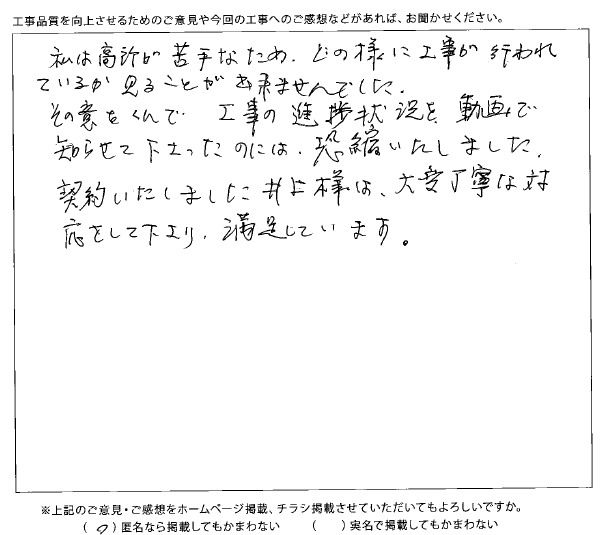 工事品質を向上させるためのご意見や今回の工事へのご感想などがあれば、お聞かせください。
私は高所が苦手なため、どの様に工事が行われ
ているか見ることが出来ませんでした。
その意をくんで 工事の進捗状況を、動画で
知らせて下さったのには、恐縮いたしました。
契約いたしました井上様は、大変丁寧な対
応をして下さり、満足しています。
※上記のご意見・ご感想をホームページ掲載、チラシ掲載させていただいてもよろしいですか。
（ ○ ）匿名なら掲載してもかまわない （　）実名で掲載してもかまわない